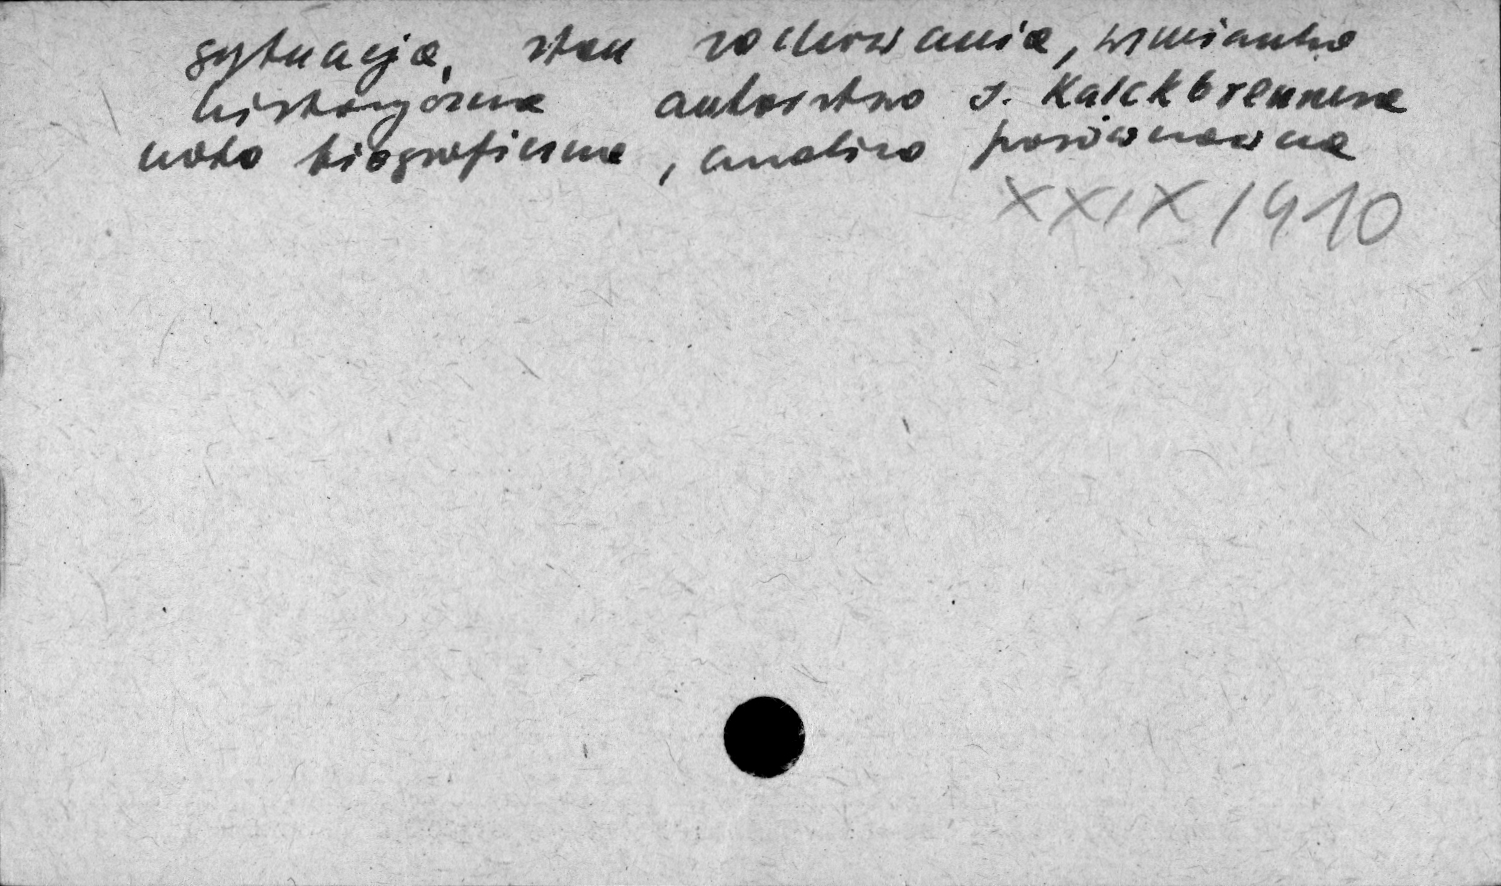 sytuacja, stan zachowania, wzmianka
historyczna autorstwo J. Kalckbrennera
nota biograficzna, analiza porównawcza
XXIX/910